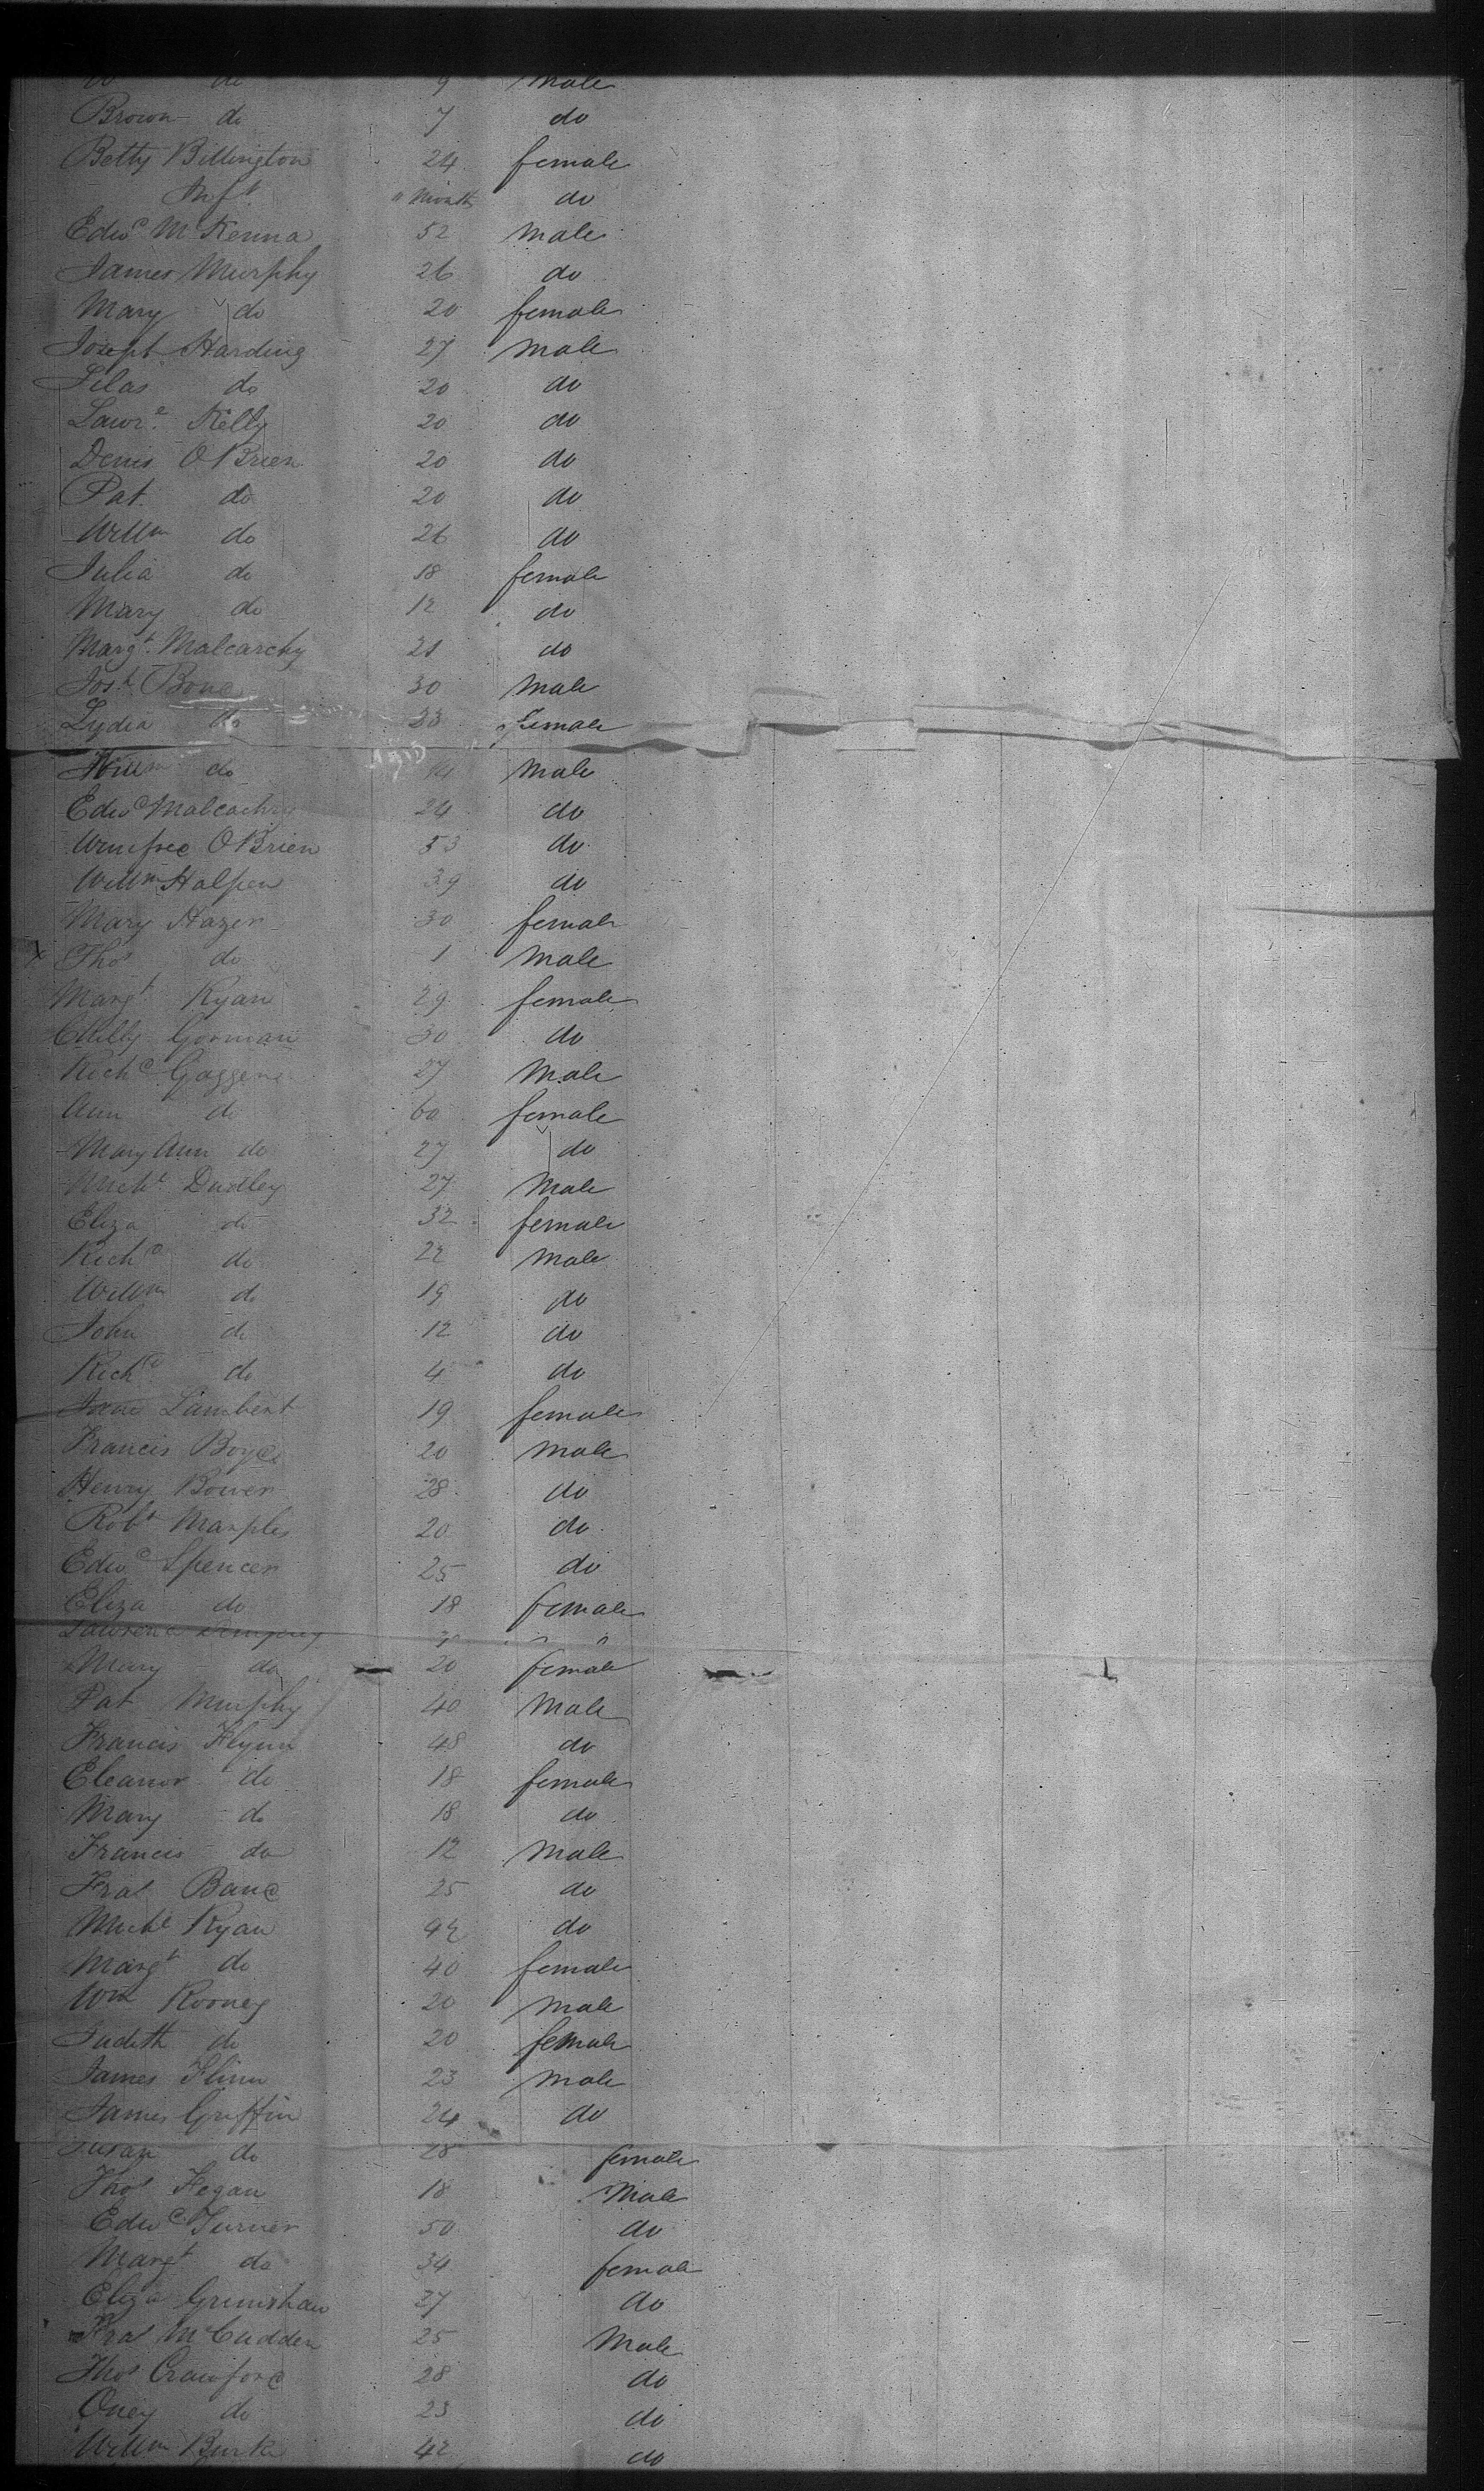 do 9 Male
Brown do 7 do
Betty Billington 24 female
Inft. Months do
Edwd McKenna 52 Male
James Murphy 26 do
Mary do 20 female
Joseph Harding 27 Male
Silas do 20 do
Lawre. Kelly 20 do
Denis OBrien 20 do
Pat do 20 do
Willm do 26 do
Julia do 18 female
Mary do 12 do
Margt. Malcarchy 21 do
Josh. Bone 30 Male
Lydia do 33 female
do 14 Male
Edwd Malcachy 24 do
Winefree OBrien 53 do
Willm Halpen 39 do
Mary Hazen 30 female
x Thos do 1 Male
Margt Ryan 29 female
Gorman 30 do
Richd Gaggen 27 Male
Ann do 60 female
Mary Ann do 27 do
Michl Dudley 27 Male
Eliza do 32 female
Richd do 22 Male
Willm do 19 do
John do 12 do
Richd do 4 do
Jane Lambert 19 female
Francis Boyce 20 Male
Henry Bower 28 do
Robt Marples 20 do
Edwd Spencer 25 do
Eliza do 18 female
Lawrence Dempsey
Mary do 20 female
Pat Murphy 40 Male
Francis Flynn 48 do
Eleanor do 18 female
Mary do 18 do
Francis do 12 Male
Fras 25 do
Michl Ryan 42 do
Margt do 40 female
Wm Rooney 20 Male
Judith do 20 female
James Flinn 23 Male
James Griffin 24 do
Susan do 28 female
Thos Fegan 18 Male
Edwd Turner 50 do
Margt do 34 female
Eliza Grimshaw 27 do
Fras McCudden 25 Male
Thos Crawford 28 do
Oney do 23 do
Willm Burke 42 do